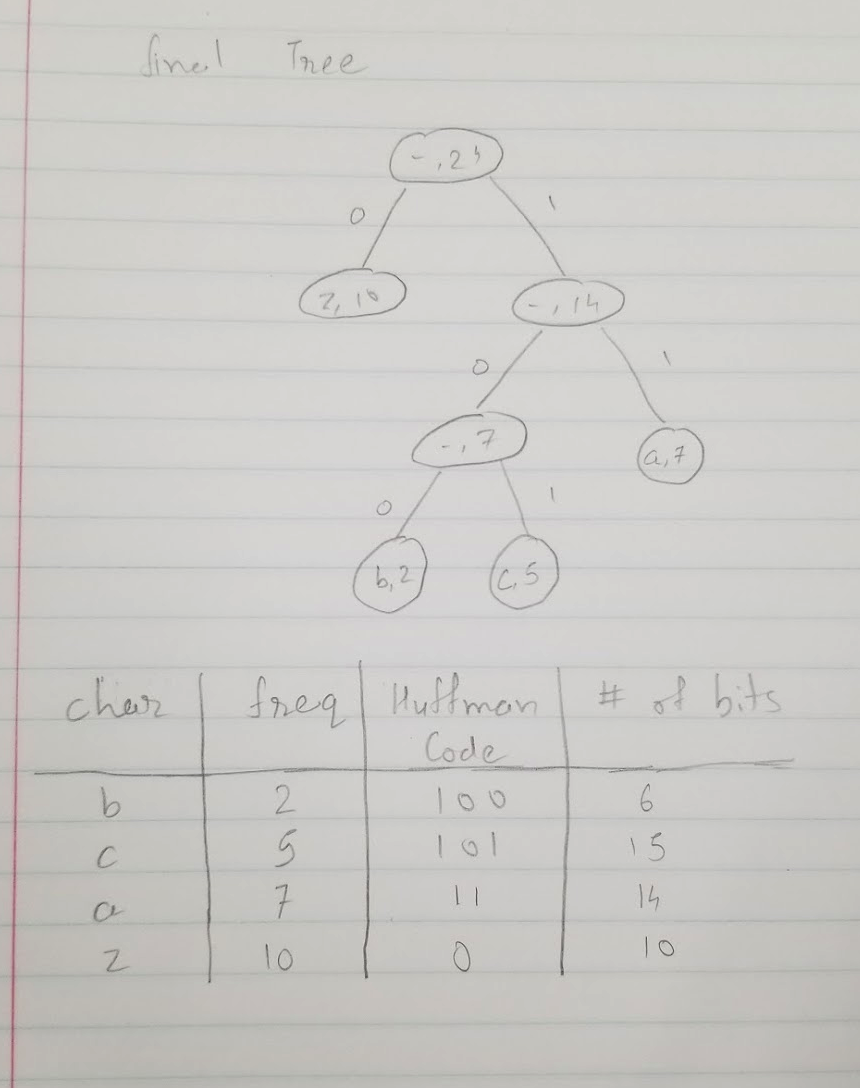 final Tree
-, 24
0 1
z, 10 -, 14
0 1
-, 7 a, 7
0 1
b, 2 c, 5
char freq Huffman Code # of bits
b 2 100 6
c 5 101 15
a 7 11 14
z 10 0 10